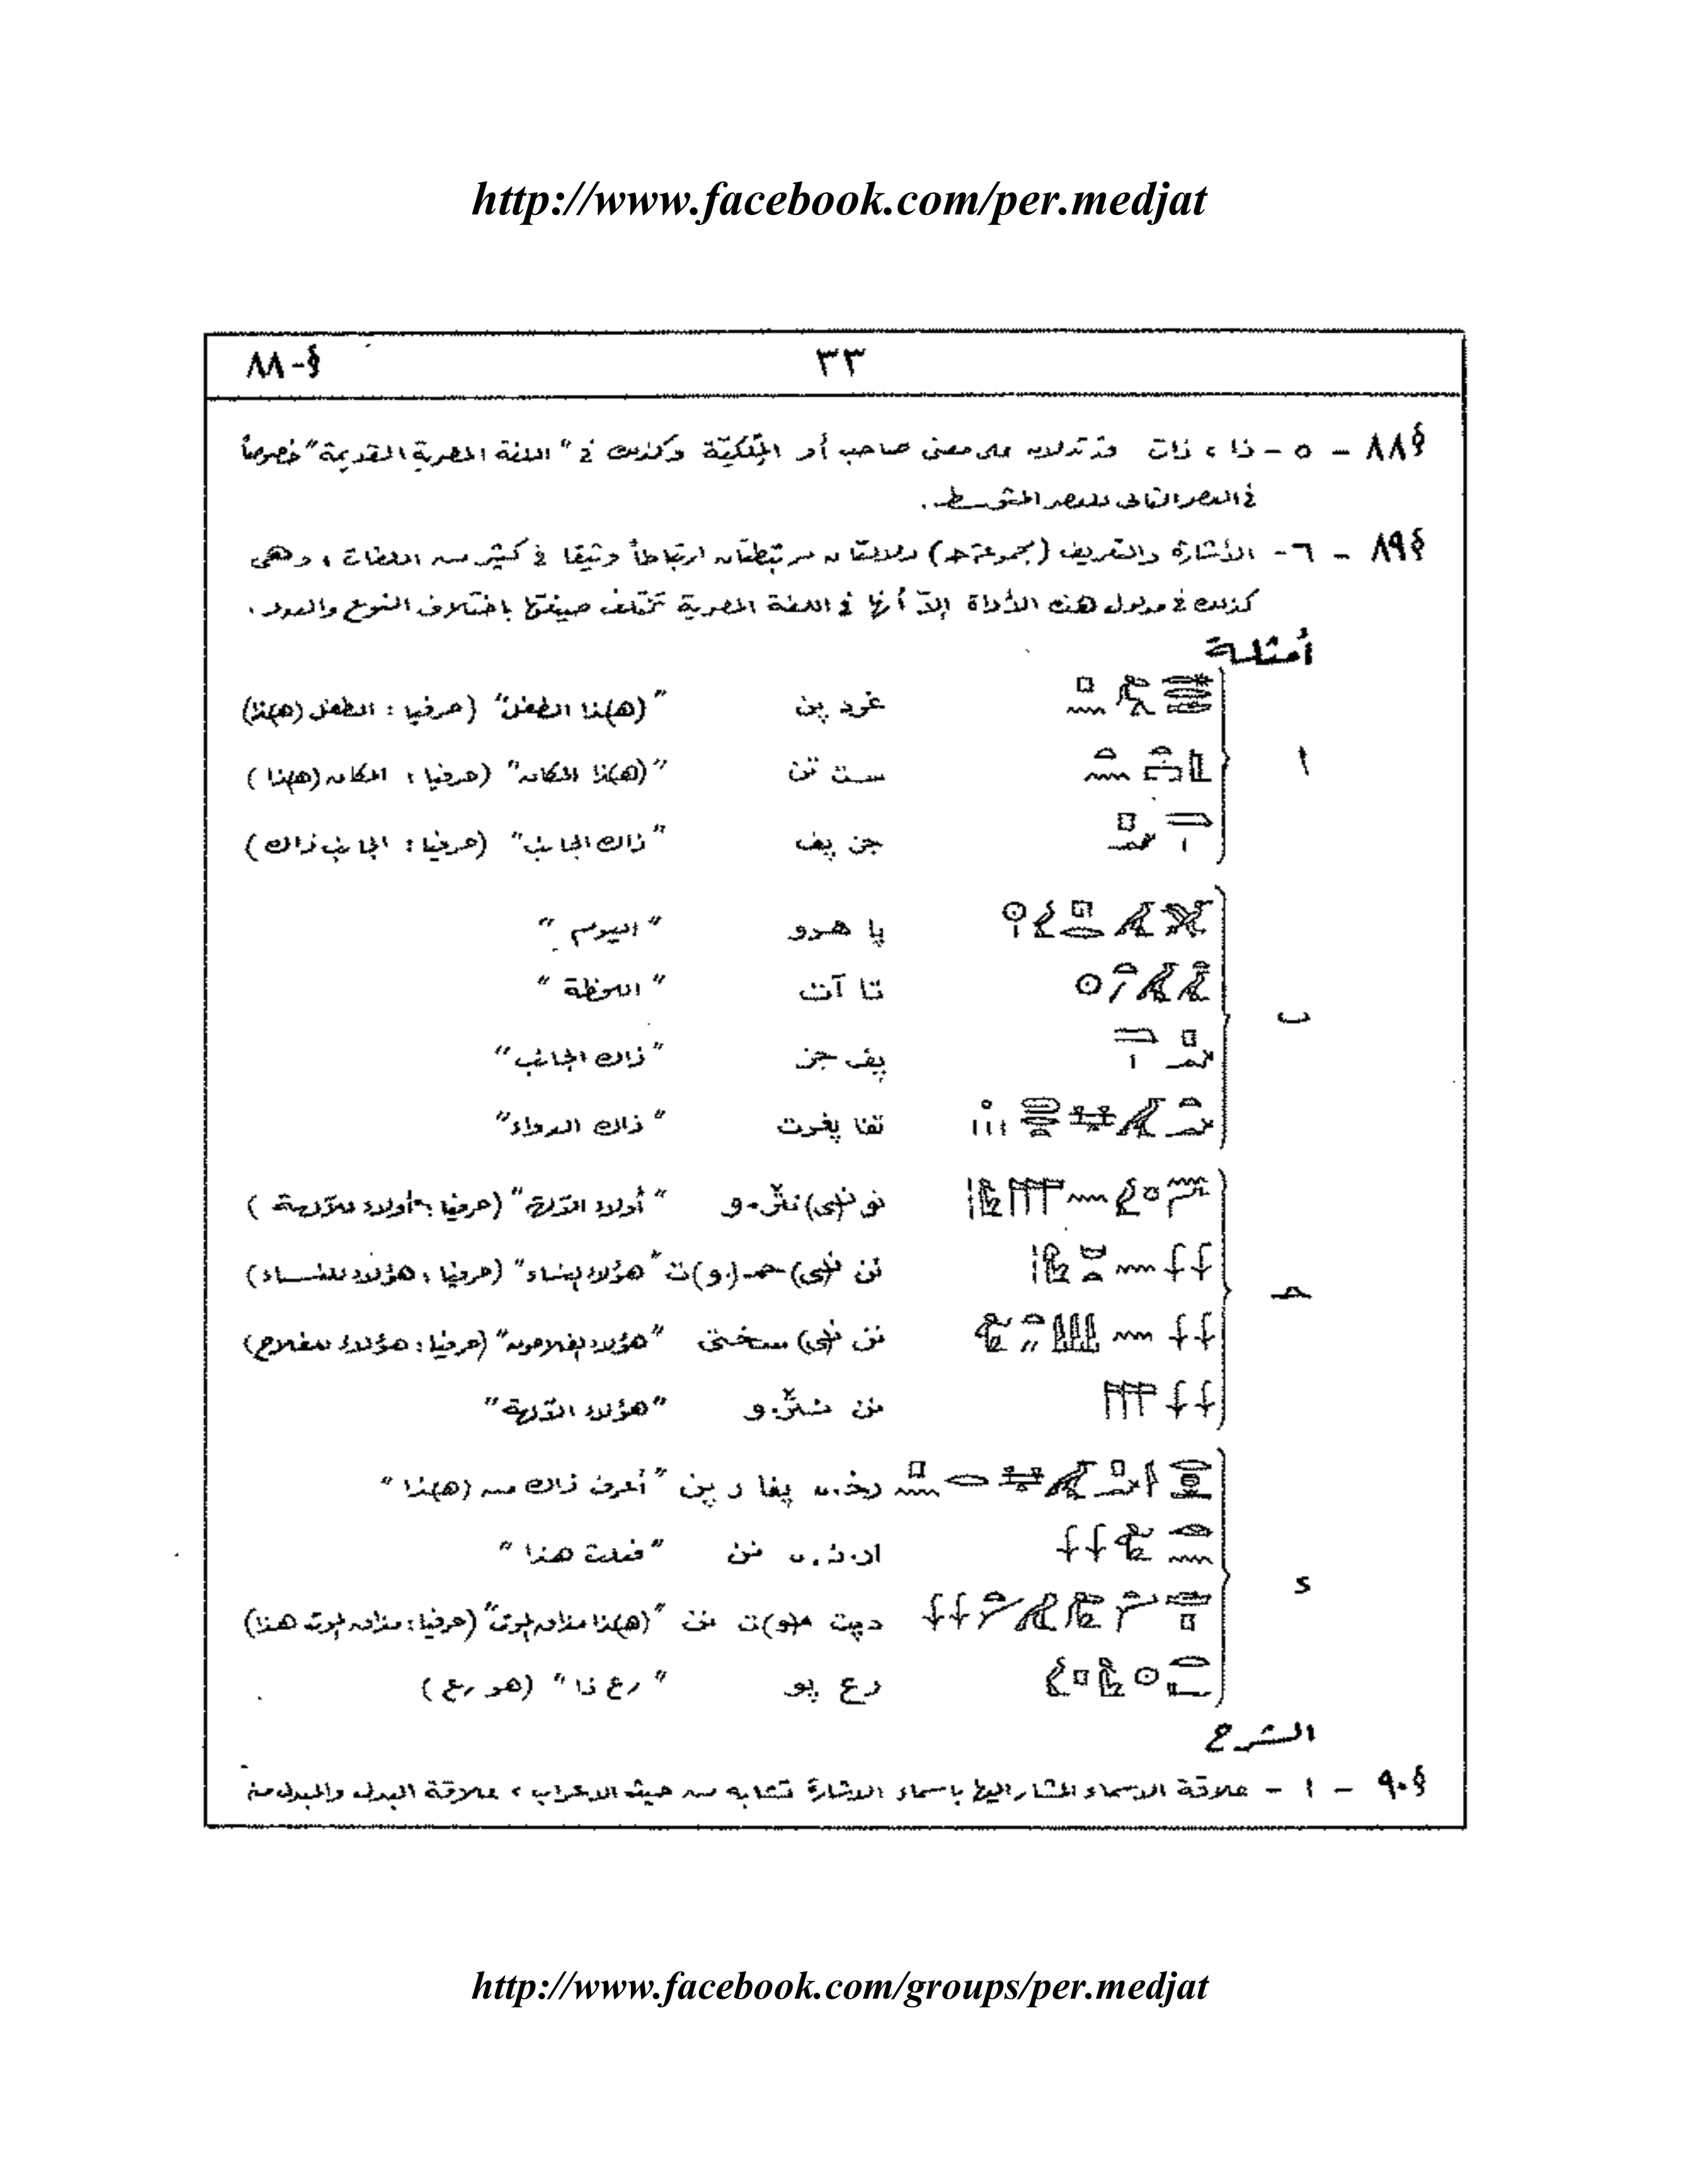 http://www.facebook.com/per.medjat
٣٣
§-٨٨
§٨٨ - ٥ - ذا ، ذات قد تدلان على معنى صاحب أو المِلْكيّة وكذلك في "اللغة المصرية القديمة" خصوصاً
في العصر التالى للعصر المتوسط .
§٨٩ - ٦ - الأشارة والتعريف (مجموعة حـ) دلالتان مرتبطتان ارتباطاً وثيقا في كثير من اللغات ، وهى
كذلك في مدلول هذه الأداة إلاّ أنها في اللغة المصرية تختلف صيغتها باختلاف النوع والعدد .
أمثلة
ا
غرد پن "(ها)ذا الطفل" (حرفيا : الطفل (ها)ذا)
ست تن "(ها)ذا المكان" (حرفيا : المكان (ها)ذا )
جن پف "ذاك الجانب" (حرفيا : الجانب ذاك )
ب
پا هرو "اليوم"
تا آت "اللحظة"
پف جن "ذاك الجانب"
تفا پغرت "ذاك الدواء"
حـ
نو ن(ى) نثر.و "أولاء الآلهة" (حرفيا : أولاء للآلهة )
نن ن(ى) حمـ(.و)ت "هؤلاء النساء" (حرفيا : هؤلاء للنساء)
نن ن(ى) سختى "هؤلاء الفلاحون" (حرفيا : هؤلاء للفلاح)
نن نثر.و "هؤلاء الآلهة"
د
رخ.ى پفا ر پن "أعرف ذاك من (ها)ذا"
ار.ن.ى نن "فعلت هذا"
دپت م(و)ت نن "(ها)ذا مذاق الموت" (حرفيا : مذاق الموت هذا)
رع پو "رع ذا" (هو رع )
الشرح
§٩٠ - ١ - علاقة الاسماء المشار اليها باسماء الاشارة تشابه من حيث الاعراب ، علاقة البدل والمبدل منه
http://www.facebook.com/groups/per.medjat